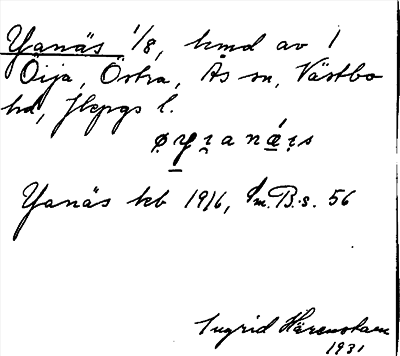 Yanäs 1/8, hmd av 1
Öija, Östra, Ås sn, Västbo
hd, Jkpgs l.
Yanäs kb 1916, Sm.B.s. 56
Ingrid Härenstam
1931